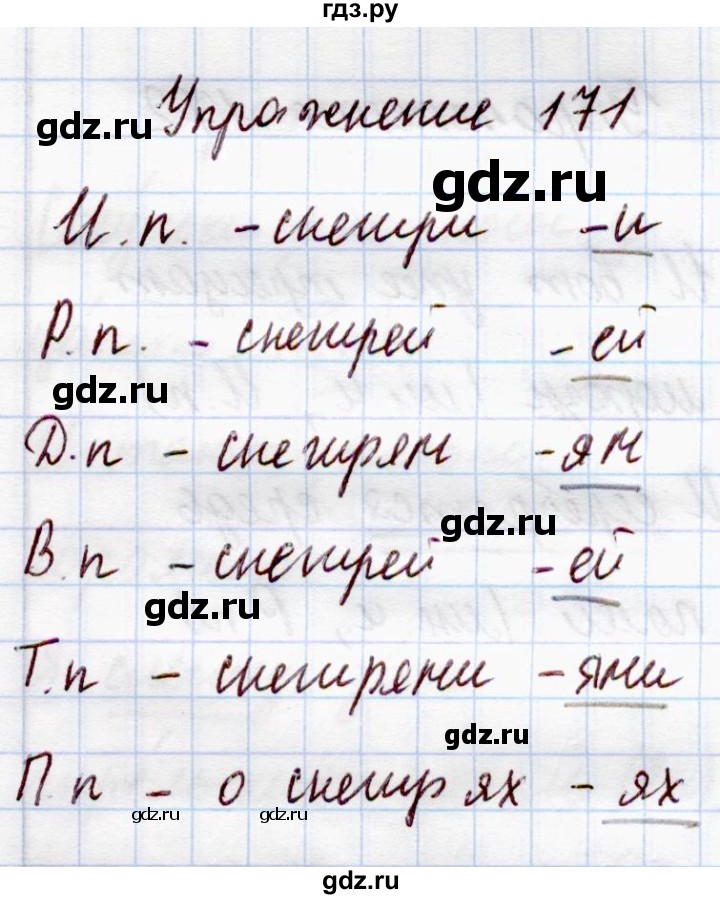 гдз.ру
gdz.ru
Упражнение 171
gdz.ru
И.п. - снегири - и
Р.п. - снегирей - ей
gdz.ru
Д.п - снегирям - ям
gdz.ru
В.п - снегирей - ей
gdz.ru
Т.п - снегирями - ями
gdz.ru
П.п - о снегирях - ях
gdz.ru gdz.ru
gdz.ru